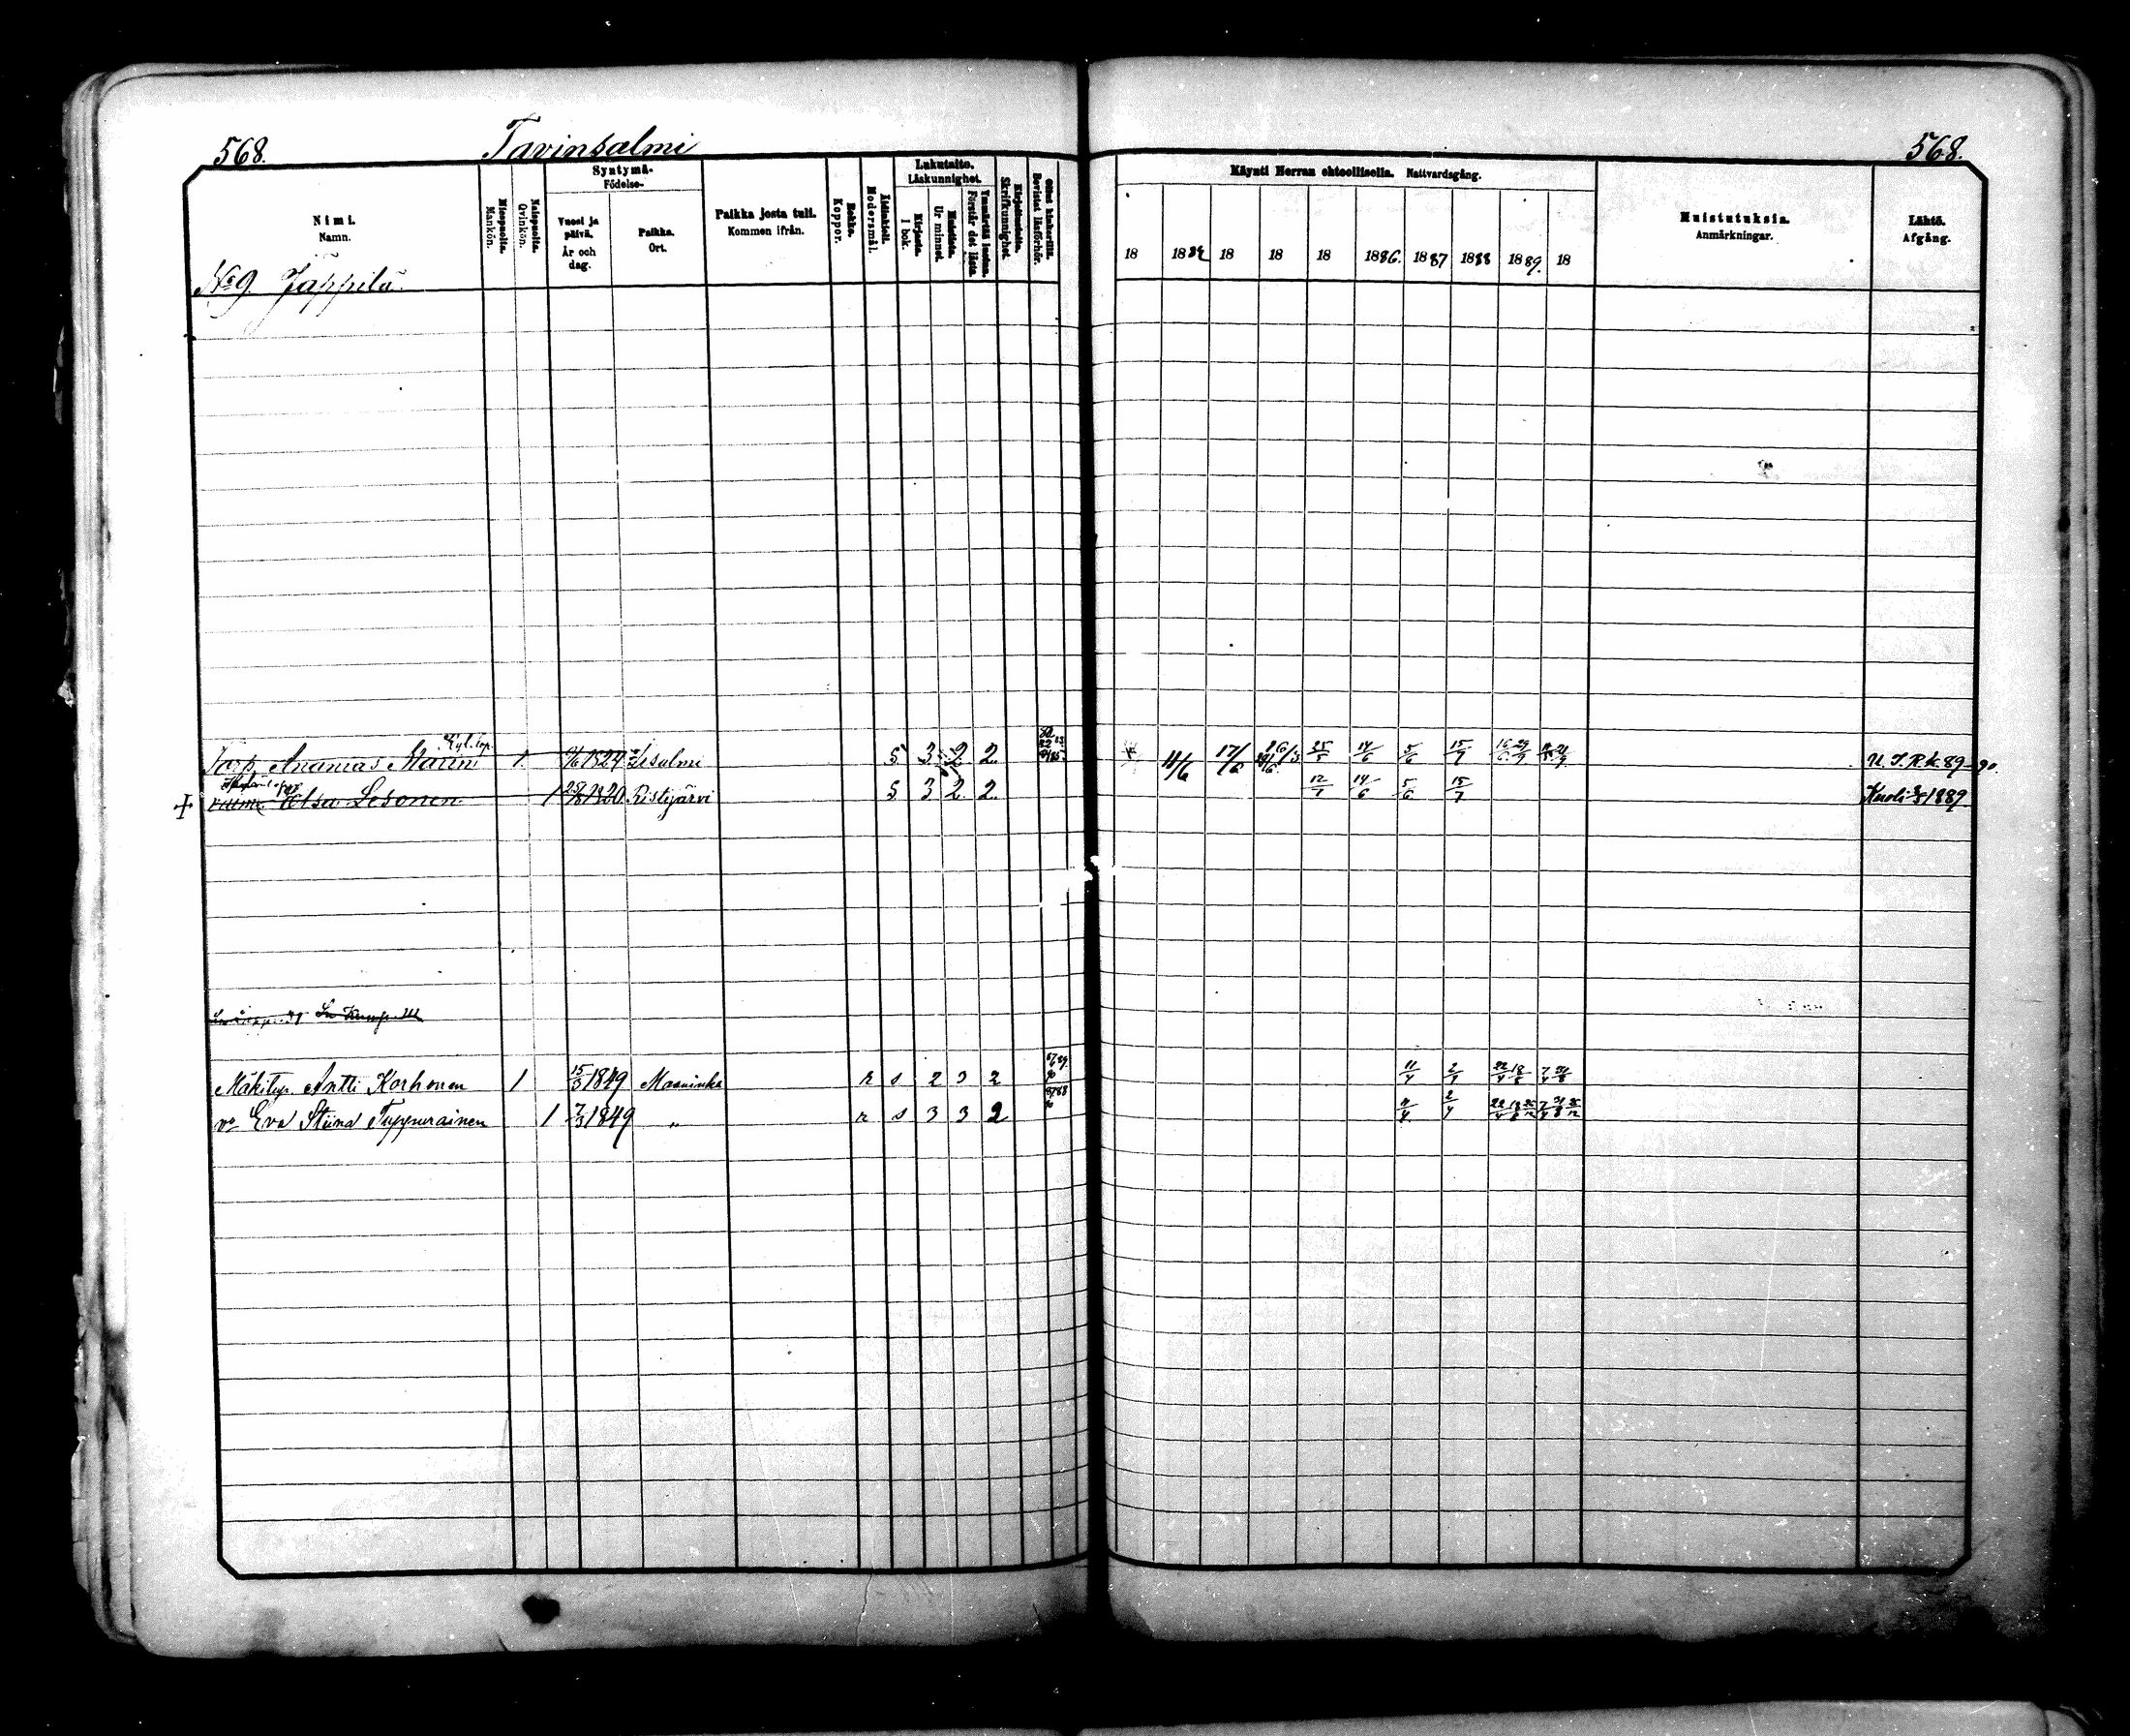 568. Tavinsalmi 568.
Nimi. Namn.
Miespuolta. Mankön.
Naispuolta. Qvinkön.
Syntymä- Födelse-
Vuosi ja päivä. År och dag.
Paikka. Ort.
Paikka josta tuli. Kommen ifrån.
Rokko. Koppor.
Äidinkieli. Modersmål.
Lukutaito. Läskunnighet.
Kirjasta. I bok.
Muistista. Ur minnet.
Ymmärtää lukun. Förstår det lästa.
Kirjoitustaito. Skrifkunnighet.
Ollut lukukerilla. Bevistat läsförhör.
Käynti Herran ehtoollisella. Nattvardsgång.
18 1882 18 18 18 1886. 1887 1888 1889. 18
Muistutuksia. Anmärkningar.
Lähtö. Afgång.
No 9. Jäppilä.
Torp. Ananias Marin 1. 1824 Iisalmi s 3 2 2. 11/6 17/6 25/5 14/6 5/6 15/7 U. T. R. k. 89-90.
vaimo Elsa Lesonen 1 1820 Ristijärvi s 3 2 2. 12/7 14/6 5/6 15/7 Kuoli 1889
Mäkitup. Antti Korhonen 1 15/3 1849 Maaninka r s 2 3 2 11/4 2/4 22/4 18/8 7/4
vo Eva Stiina Tuppurainen 1 7/3 1849 " r s 3 3 2 11/4 2/4 22/4 18/8 7/4